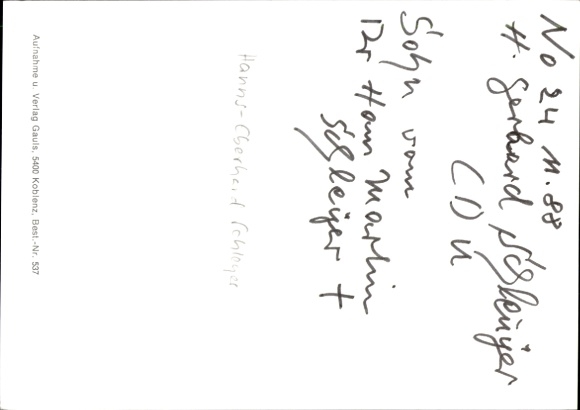 No 24 11.88
H. Gerhard Schleyer
CDU
Sohn vom
Dr Hans Martin
Schleyer †
Hanns-Eberhard Schleyer
Aufnahme u. Verlag Gauls, 5400 Koblenz, Best.-Nr. 537